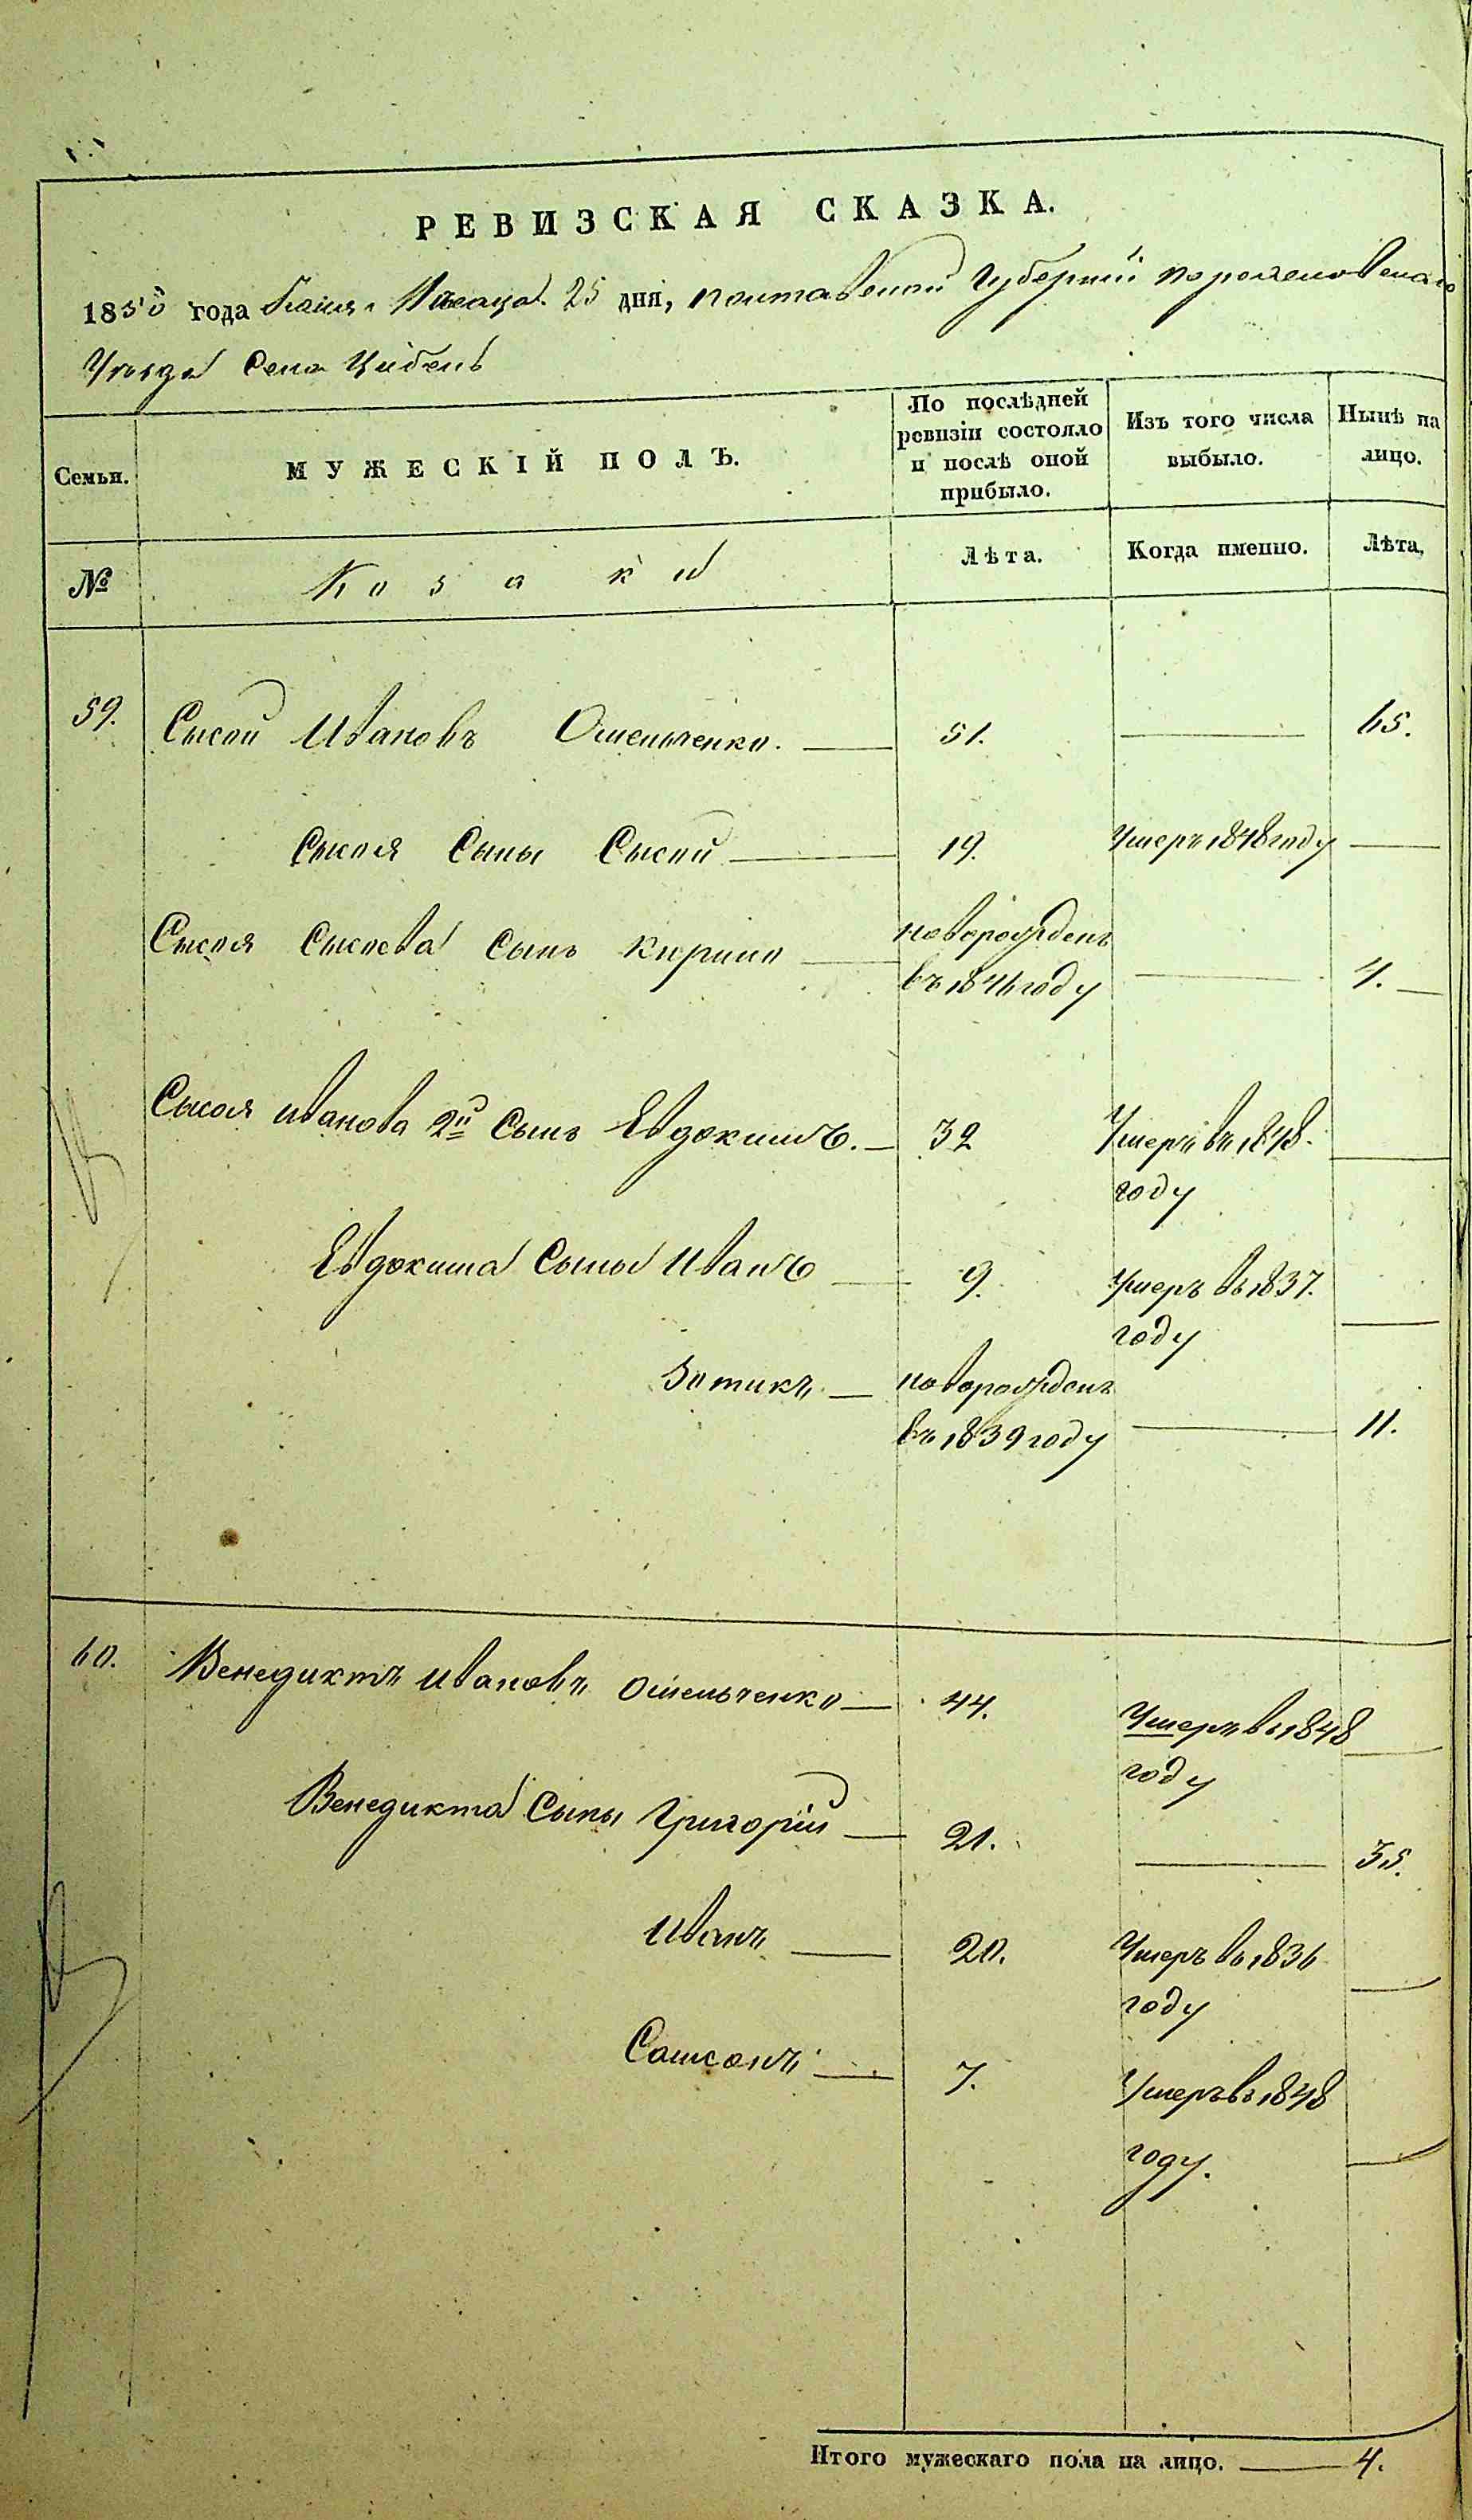 РЕВИЗСКАЯ СКАЗКА.
1850 года Июня Мѣсяца 25 дня, Полтавской Губерніи Переяславскаго
Уѣзда Села Цибель
Семьи.
МУЖЕСКІЙ ПОЛЪ.
По послѣдней ревизіи состояло и послѣ оной прибыло.
Изъ того числа выбыло.
Нынѣ на лицо.
№
Козаки
Лѣта.
Когда именно.
Лѣта.
59. Сысой Ивановъ Омельченко. 51. 65.
Сысоя Сыны Сысой 19. Умеръ 1848 году
Сысоя Сысоева Сынъ Кирило новорожденъ
въ 1846 году 4.
Сысоя Иванова 2й Сынъ Евдокимъ. 32 Умеръ въ 1848.
году
Евдокима Сыны Иванъ 9. Умеръ въ 1837.
году
Зотикъ новорожденъ
въ 1839 году 11.
60. Венедиктъ Ивановъ Омельченко 44. Умеръ въ 1848
году
Венедикта Сыны Григорій 21. 35.
Иванъ 20. Умеръ въ 1836
году
Самсонъ 7. Умеръ въ 1848
году.
Итого мужескаго пола на лицо. 4.